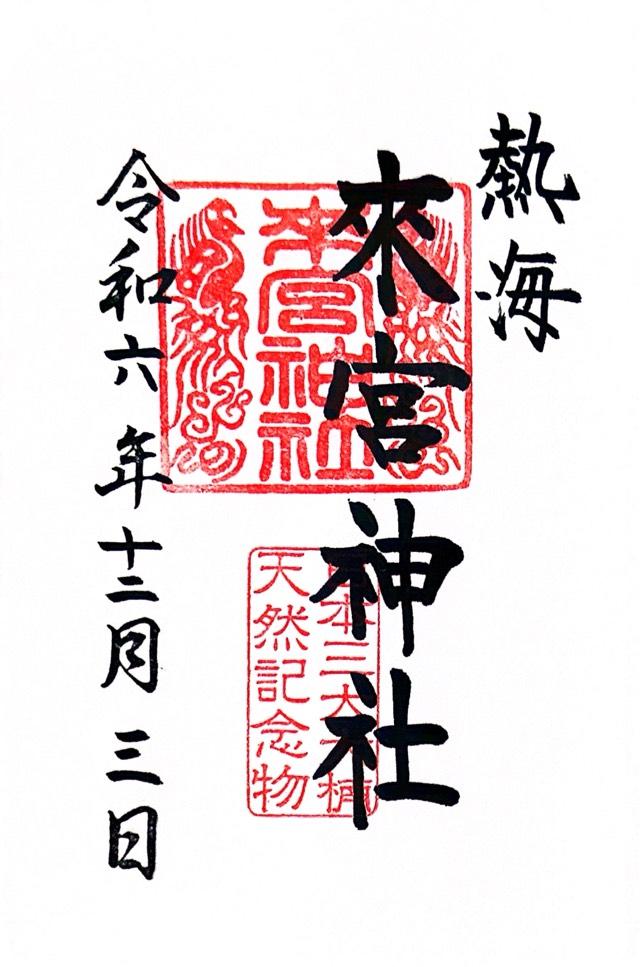 熱海
來宮神社
來宮神社
日本三大樟
天然記念物
令和六年十二月三日